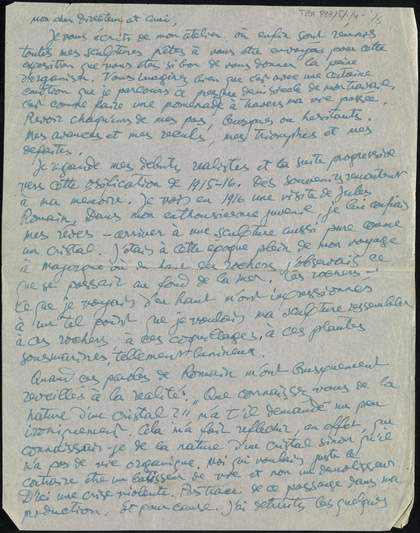 mon cher Directeur et ami,
Je vous écris de mon atelier où enfin sont réunies
toutes mes sculptures prêtes à vous être envoyées pour cette
exposition que vous êtes si bon de vous donner la peine
d'organiser. Vous imaginez bien que c'est avec une certaine
émotion que je parcours ce presque demi siècle de mon travail,
c'est comme faire une promenade à travers ma vie passée.
Revoir chacun de mes pas, brusques ou hésitants.
Mes avances et mes reculs, mes triomphes et mes
défaites.
Je regarde mes débuts réalistes et la suite progressive
vers cette ossification de 1915-16. Des souvenirs remontent
à ma mémoire. Je vois en 1916 une visite de Jules
Romain. Dans mon enthousiasme juvenile, je lui confiais
mes rêves - arriver à une sculpture aussi pure comme
un cristal. J'étais à cette époque plein de mon voyage
à Majorque où en haut des rochers j'observais ce
que se passait au fond de la mer. Les rochers -
ce que je voyais d'en haut m'ont impressionnés
à un tel point que je voulais ma sculpture ressembler
à ces rochers, à ces coquillages, à ces plantes
sousmarines, tellement lumineux.
Quand ces paroles de Romain m'ont brusquement
reveillés à la realité: "Que connaissez vous de la
nature d'un cristal?" m'a t'il demandé un peu
ironiquement. Cela m'a fait reflechir, en effet, que
connaissais-je de la nature d'un cristal sinon qu'il
n'a pas de vie organique. Moi qui voulais juste le
contraire être un batisseur de vie et non un demolisseur
D'ici une crise violente. Pas trace de ce passage dans ma
production. Et pour cause. J'ai detruits les quelques